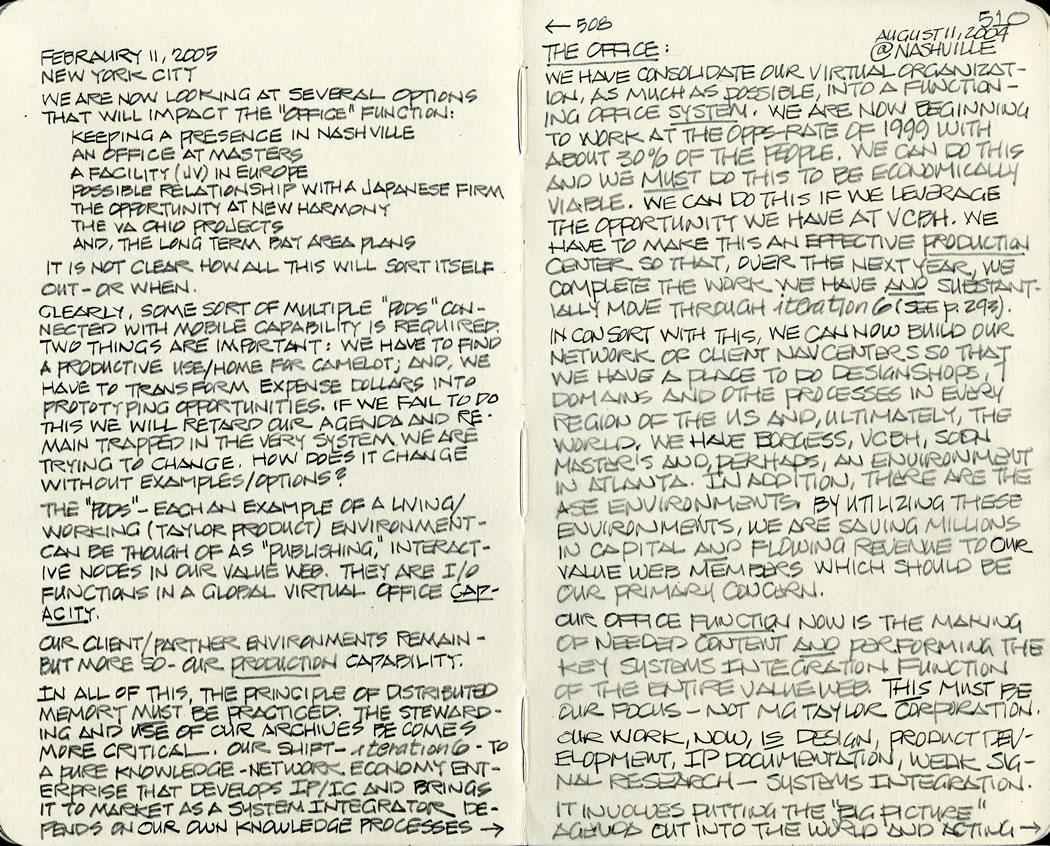 FEBRAURY 11, 2005
NEW YORK CITY
WE ARE NOW LOOKING AT SEVERAL OPTIONS
THAT WILL IMPACT THE "OFFICE" FUNCTION:
KEEPING A PRESENCE IN NASHVILLE
AN OFFICE AT MASTERS
A FACILITY (JV) IN EUROPE
POSSIBLE RELATIONSHIP WITH A JAPANESE FIRM
THE OPPORTUNITY AT NEW HARMONY
THE VA OHIO PROJECTS
AND, THE LONG TERM BAY AREA PLANS
IT IS NOT CLEAR HOW ALL THIS WILL SORT ITSELF
OUT - OR WHEN.
CLEARLY, SOME SORT OF MULTIPLE "PODS" CON-
NECTED WITH MOBILE CAPABILITY IS REQUIRED.
TWO THINGS ARE IMPORTANT: WE HAVE TO FIND
A PRODUCTIVE USE/HOME FOR CAMELOT; AND, WE
HAVE TO TRANSFORM EXPENSE DOLLARS INTO
PROTOTYPING OPPORTUNITIES. IF WE FAIL TO DO
THIS WE WILL RETARD OUR AGENDA AND RE-
MAIN TRAPPED IN THE VERY SYSTEM WE ARE
TRYING TO CHANGE. HOW DOES IT CHANGE
WITHOUT EXAMPLES/OPTIONS?
THE "PODS" - EACH AN EXAMPLE OF A LIVING/
WORKING (TAYLOR PRODUCT) ENVIRONMENT -
CAN BE THOUGH OF AS "PUBLISHING," INTERACT-
IVE NODES IN OUR VALUE WEB. THEY ARE I/O
FUNCTIONS IN A GLOBAL VIRTUAL OFFICE CAP-
ACITY.
OUR CLIENT/PARTNER ENVIRONMENTS REMAIN -
BUT MORE SO - OUR PRODUCTION CAPABILITY.
IN ALL OF THIS, THE PRINCIPLE OF DISTRIBUTED
MEMORY MUST BE PRACTICED. THE STEWARD-
ING AND USE OF OUR ARCHIVES BECOMES
MORE CRITICAL. OUR SHIFT - iteration 6 - TO
A PURE KNOWLEDGE - NETWORK ECONOMY ENT-
ERPRISE THAT DEVELOPS IP/IC AND BRINGS
IT TO MARKET AS A SYSTEM INTEGRATOR DE-
PENDS ON OUR OWN KNOWLEDGE PROCESSES →
← 508
510
AUGUST 11, 2004
@ NASHVILLE
THE OFFICE:
WE HAVE CONSOLIDATE OUR VIRTUAL ORGANIZAT-
ION, AS MUCH AS POSSIBLE, INTO A FUNCTION-
ING OFFICE SYSTEM. WE ARE NOW BEGINNING
TO WORK AT THE OPPS-RATE OF 1999 WITH
ABOUT 30% OF THE PEOPLE. WE CAN DO THIS
AND WE MUST DO THIS TO BE ECONOMICALLY
VIABLE. WE CAN DO THIS IF WE LEVERAGE
THE OPPORTUNITY WE HAVE AT VCBH. WE
HAVE TO MAKE THIS AN EFFECTIVE PRODUCTION
CENTER SO THAT, OVER THE NEXT YEAR, WE
COMPLETE THE WORK WE HAVE AND SUBSTANT-
IALLY MOVE THROUGH iteration 6 (SEE p. 293).
IN CONSORT WITH THIS, WE CAN NOW BUILD OUR
NETWORK OF CLIENT NAVCENTERS SO THAT
WE HAVE A PLACE TO DO DESIGNSHOPS, 7
DOMAINS AND OTHE PROCESSES IN EVERY
REGION OF THE US AND, ULTIMATELY, THE
WORLD. WE HAVE BORGESS, VCBH, SOON
MASTER'S AND, PERHAPS, AN ENVIRONMENT
IN ATLANTA. IN ADDITION, THERE ARE THE
ASE ENVIRONMENTS. BY UTILIZING THESE
ENVIRONMENTS, WE ARE SAVING MILLIONS
IN CAPITAL AND FLOWING REVENUE TO OUR
VALUE WEB MEMBERS WHICH SHOULD BE
OUR PRIMARY CONCERN.
OUR OFFICE FUNCTION NOW IS THE MAKING
OF NEEDED CONTENT AND PERFORMING THE
KEY SYSTEMS INTEGRATION FUNCTION
OF THE ENTIRE VALUE WEB. THIS MUST BE
OUR FOCUS - NOT MG TAYLOR CORPORATION.
OUR WORK, NOW, IS DESIGN, PRODUCT DEV-
ELOPMENT, IP DOCUMENTATION, WEAK SIG-
NAL RESEARCH - SYSTEMS INTEGRATION.
IT INVOLVES PUTTING THE "BIG PICTURE"
AGENDA OUT INTO THE WORLD AND ACTING →